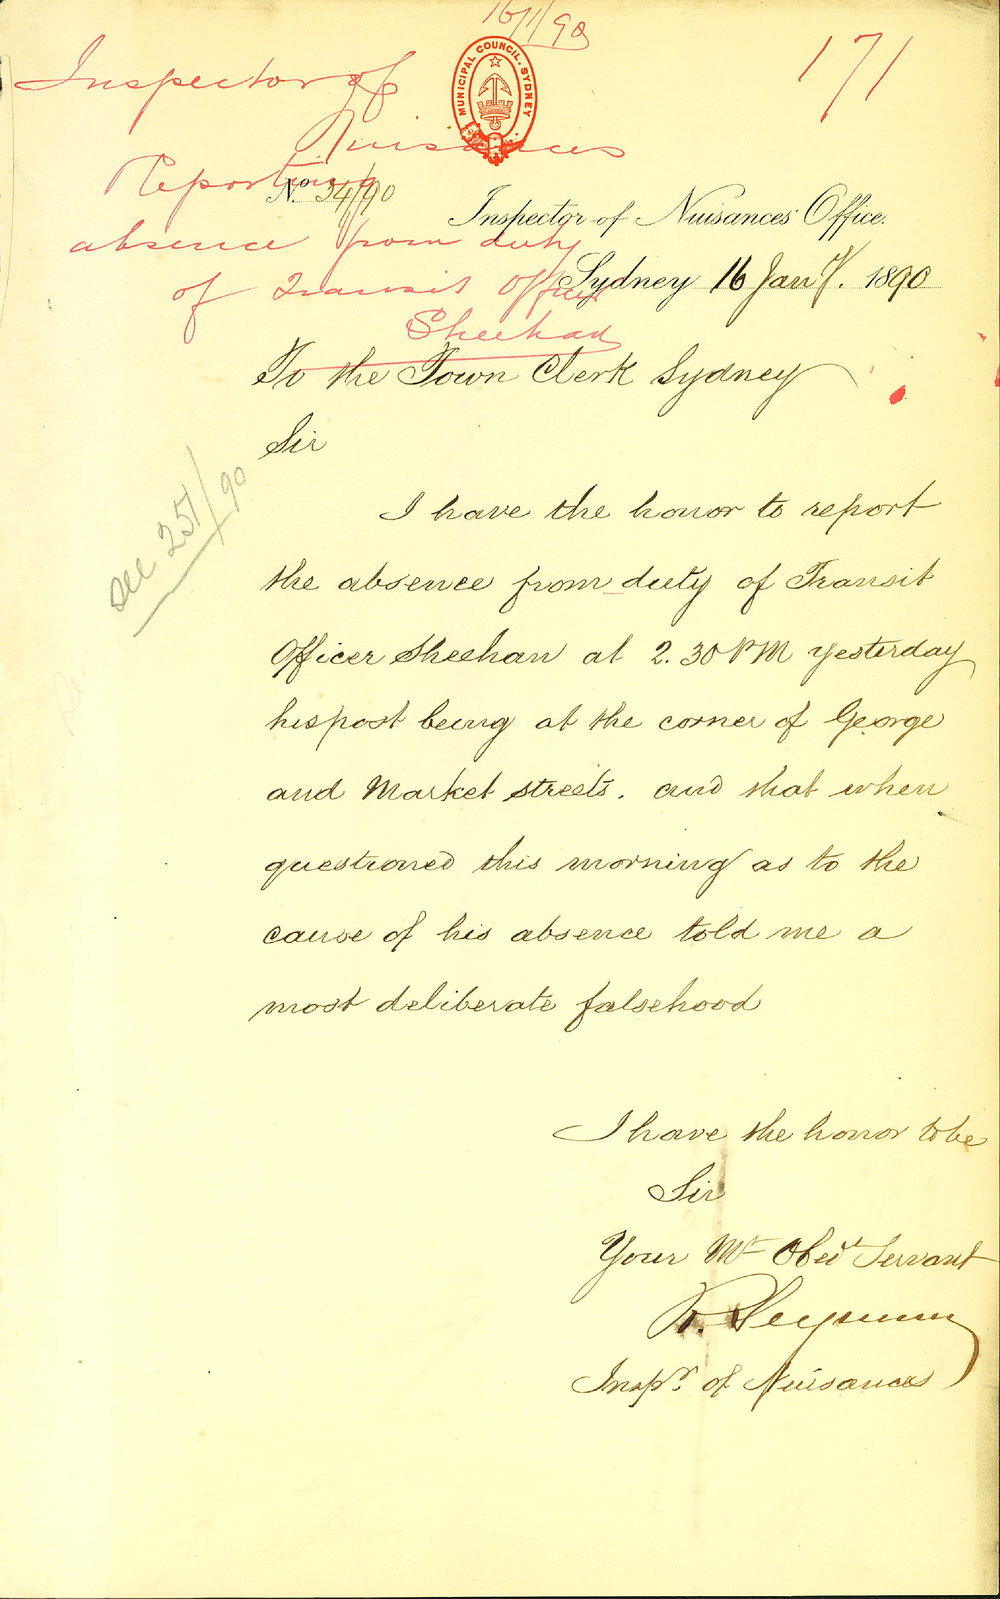 16/1/90
171
MUNICIPAL COUNCIL. SYDNEY
Inspector of
Nuisances
Reporting
absence from duty
of Transit Officer
Sheehan
No. 34/90
Inspector of Nuisances Office.
Sydney 16 Jany. 1890
To the Town Clerk Sydney
Sir
see 251/90
I have the honor to report
the absence from duty of Transit
Officer Sheehan at 2.30 PM yesterday
his post being at the corner of George
and Market streets. and that when
questioned this morning as to the
cause of his absence told me a
most deliberate falsehood
I have the honor to be
Sir
Your Mt Obedt Servant
R. Seymour
Inspr. of Nuisances